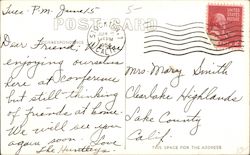 Tues. P.M. June 15
POST CARD
Dear Friend, We are
enjoying ourselves
here at conference
but still thinking
of friends at home.
We will see you
again soon. Love
The Huntleys
Mrs. Mary Smith
Clearlake Highlands
Lake County
Calif.
THIS SPACE FOR THE ADDRESS